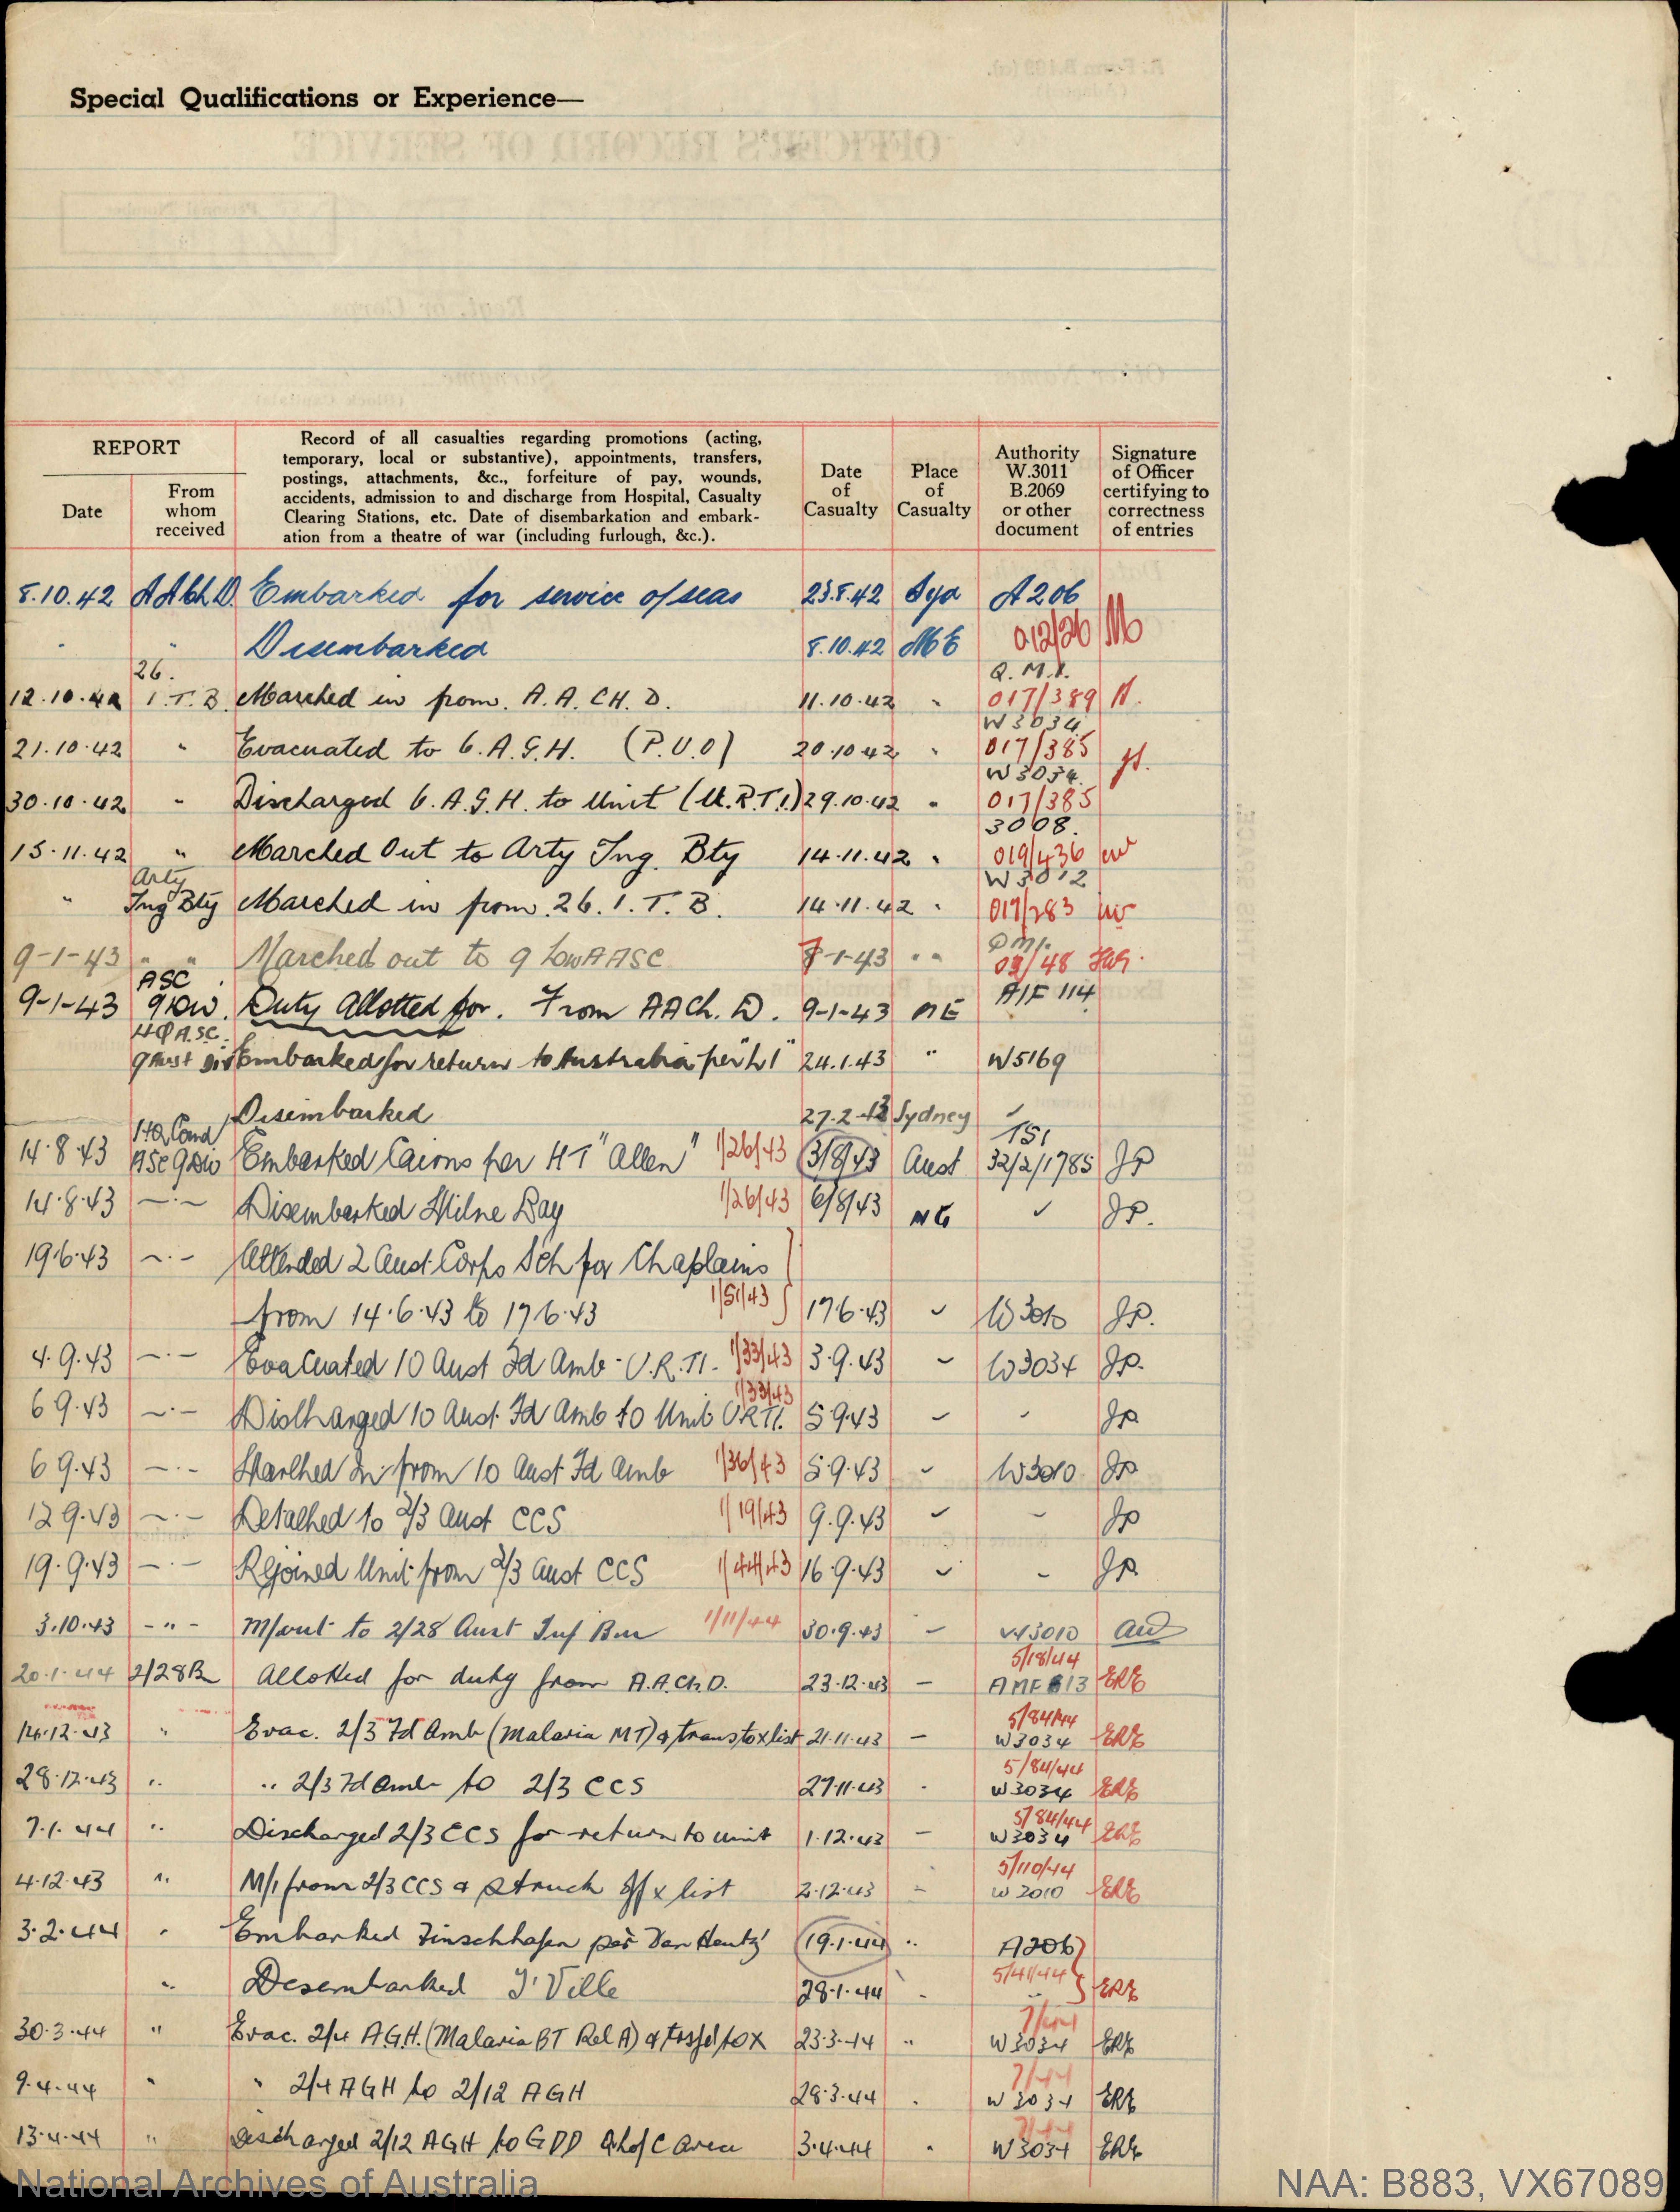 Special Qualifications or Experience—
REPORT
Date
From whom received
Record of all casualties regarding promotions (acting,
temporary, local or substantive), appointments, transfers,
postings, attachments, &c., forfeiture of pay, wounds,
accidents, admission to and discharge from Hospital, Casualty
Clearing Stations, etc. Date of disembarkation and embark-
ation from a theatre of war (including furlough, &c.).
Date of Casualty
Place of Casualty
Authority W.3011 B.2069 or other document
Signature of Officer certifying to correctness of entries
8.10.42 A A Ch D. Embarked for service o/seas 23.8.42 Syd A206
" " Disembarked 8.10.42 ME 012/26
26. Q.M.1.
12.10.42 I.T.B. Marched in from. A.A.CH.D. 11.10.42 " 017/389
W3034
21.10.42 " Evacuated to 6.A.G.H. (P.U.O) 20.10.42 " 017/385
W3034.
30.10.42 " Discharged 6.A.G.H. to Unit (U.R.T.I.) 29.10.42 " 017/385
3008.
15.11.42 " Marched Out to Arty Tng. Bty 14.11.42 " 019/436
Arty W3012
" Tng Bty Marched in from. 26.I.T.B. 14.11.42 " 017/283
9-1-43 " " Marched out to 9 AASC -1-43 " " /48
ASC AIF 114
9-1-43 9 Div. Duty Allotted for. From AACh.D. 9-1-43 ME
HQ A.S.C.
9 Aust Div Embarked for return to Australia per 24.1.43 " W5169
Disembarked 27.2.43 Sydney ✓
HQ Comd 151
14.8.43 ASC 9 Div Embarked Cairns per HT "Allen" 1/26/43 3/8/43 Aust 32/2/1785 JP
14.8.43 —"— Disembarked Milne Bay 1/26/43 6/8/43 NG ✓ JP.
19.6.43 —"— Attended 2 Aust Corps Sch for Chaplains
from 14.6.43 to 17.6.43 1/51/43 17.6.43 ✓ W3010 JP.
4.9.43 —"— Evacuated 10 Aust Fd Amb - U.R.TI. 1/33/43 3.9.43 ✓ W3034 JP.
6.9.43 —"— Discharged 10 Aust Fd Amb to Unit URTI. 1/33/43 5.9.43 ✓ " JP
6.9.43 —"— Marched In from 10 Aust Fd Amb 1/36/43 5.9.43 ✓ W3010 JP
12.9.43 —"— Detached to 2/3 Aust CCS 1/19/43 9.9.43 ✓ " JP
19.9.43 —"— Rejoined Unit from 2/3 Aust CCS 1/44/43 16.9.43 ✓ " JP
3.10.43 -"- M/out to 2/28 Aust Inf Bn 1/11/44 30.9.43 — W3010
5/18/44
20.1.44 2/28 Bn Allotted for duty from A.A.Ch.D. 23.12.43 — AMF 613 ERE
5/84/44
14.12.43 " Evac. 2/3 Fd Amb (Malaria MT) & trans to x list 21.11.43 — W3034 ERE
5/84/44
28.12.43 " " 2/3 Fd Amb to 2/3 CCS 27.11.43 " W3034 ERE
5/84/44
7.1.44 " Discharged 2/3 CCS for return to unit 1.12.43 — W3034 ERE
5/110/44
4.12.43 " M/i from 2/3 CCS & struck off x list 2.12.43 — W3010 ERE
3.2.44 " Embarked Finschhafen per Van Heutz' 19.1.44 " A206
5/41/44
" Disembarked T'Ville 28.1.44 " " ERE
7/44
30.3.44 " Evac. 2/4 A.G.H. (Malaria BT Rel A) & tosfd to X 23.3.44 " W3034 ERE
7/44
9.4.44 " " 2/4 AGH to 2/12 AGH 28.3.44 " W3034 ERE
7/44
13.4.44 " Discharged 2/12 AGH to GDD Qld L of C Area 3.4.44 " W3034 ERE
National Archives of Australia
NAA: B883, VX67089